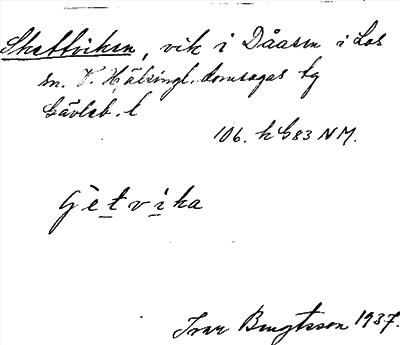 Skattviken, vik i Dåasen i Los
sn. V. Hälsingl. domsagas tg
Gävleb. l
106. k G83 NM.
Gètvika
Ivar Bengtsson 1937.